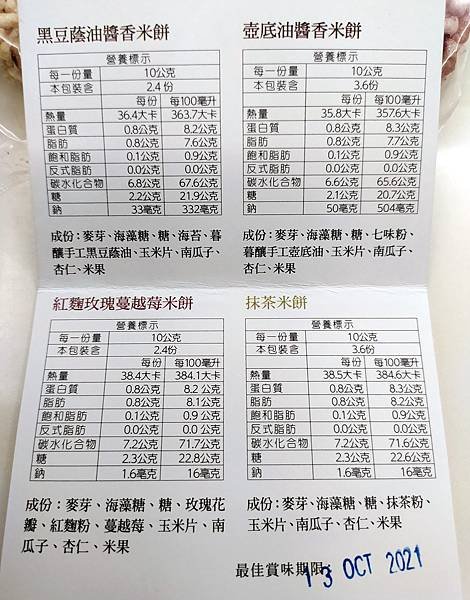 黑豆蔭油醬香米餅
營養標示
每一份量 10公克
本包裝含 2.4 份
每份 每100毫升
熱量 36.4大卡 363.7大卡
蛋白質 0.8公克 8.2公克
脂肪 0.8公克 7.6公克
飽和脂肪 0.1公克 0.9公克
反式脂肪 0.0公克 0.0公克
碳水化合物 6.8公克 67.6公克
糖 2.2公克 21.9公克
鈉 33毫克 332毫克
成份：麥芽、海藻糖、糖、海苔、暮
釀手工黑豆蔭油、玉米片、南瓜子、
杏仁、米果
壺底油醬香米餅
營養標示
每一份量 10公克
本包裝含 3.6份
每份 每100毫升
熱量 35.8大卡 357.6大卡
蛋白質 0.8公克 8.3公克
脂肪 0.8公克 7.7公克
飽和脂肪 0.1公克 0.9公克
反式脂肪 0.0公克 0.0公克
碳水化合物 6.6公克 65.6公克
糖 2.1公克 20.7公克
鈉 50毫克 504毫克
成份：麥芽、海藻糖、糖、七味粉、
暮釀手工壺底油、玉米片、南瓜子、
杏仁、米果
紅麴玫瑰蔓越莓米餅
營養標示
每一份量 10公克
本包裝含 2.4份
每份 每100毫升
熱量 38.4大卡 384.1大卡
蛋白質 0.8公克 8.2 公克
脂肪 0.8公克 8.1公克
飽和脂肪 0.1公克 0.9 公克
反式脂肪 0.0公克 0.0 公克
碳水化合物 7.2公克 71.7公克
糖 2.3公克 22.8公克
鈉 1.6毫克 16毫克
成份：麥芽、海藻糖、糖、玫瑰花
瓣、紅麴粉、蔓越莓、玉米片、南
瓜子、杏仁、米果
抹茶米餅
營養標示
每一份量 10公克
本包裝含 3.6份
每份 每100毫升
熱量 38.5大卡 384.6大卡
蛋白質 0.8公克 8.3公克
脂肪 0.8公克 8.2公克
飽和脂肪 0.1公克 0.9公克
反式脂肪 0.0公克 0.0公克
碳水化合物 7.2公克 71.6公克
糖 2.3公克 22.6公克
鈉 1.6毫克 16毫克
成份：麥芽、海藻糖、糖、抹茶粉、
玉米片、南瓜子、杏仁、米果
最佳賞味期限：
13 OCT 2021